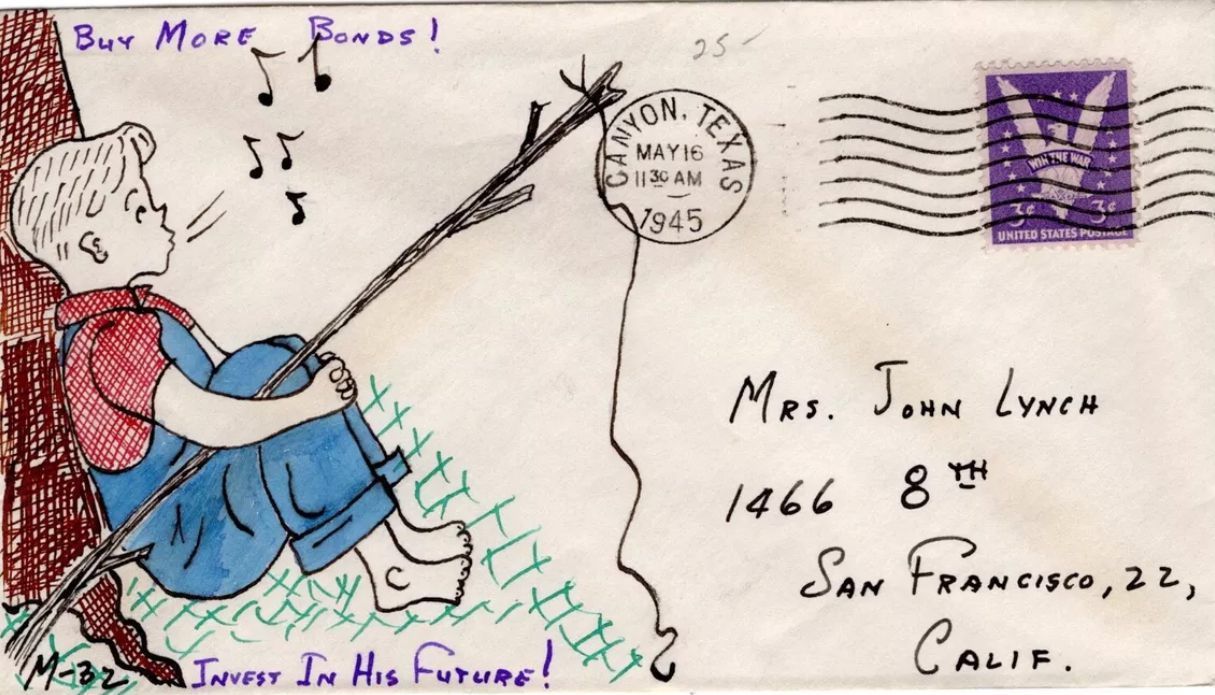 BUY MORE BONDS!
25-
CANYON, TEXAS
MAY 16
11 30 AM
1945
WIN THE WAR
3¢ 3¢
UNITED STATES POSTAGE
MRS. JOHN LYNCH
1466 8TH
SAN FRANCISCO, 22,
CALIF.
M-32
INVEST IN HIS FUTURE!